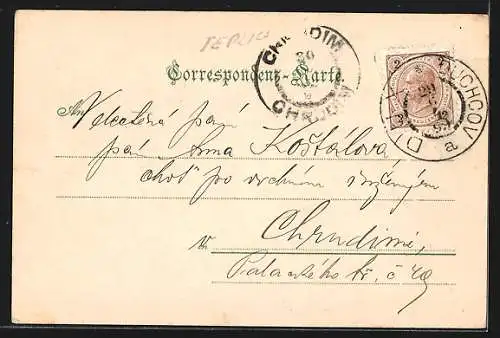 TEPLICE
CHRUDIM
CHRUDIM
Correspondenz-Karte.
DUX DUCHCOV
a
2 2
An Velectěná paní
paní Anna Košťálová,
choť po vrchním inženýru
in Chrudimi,
Palackého tř. č